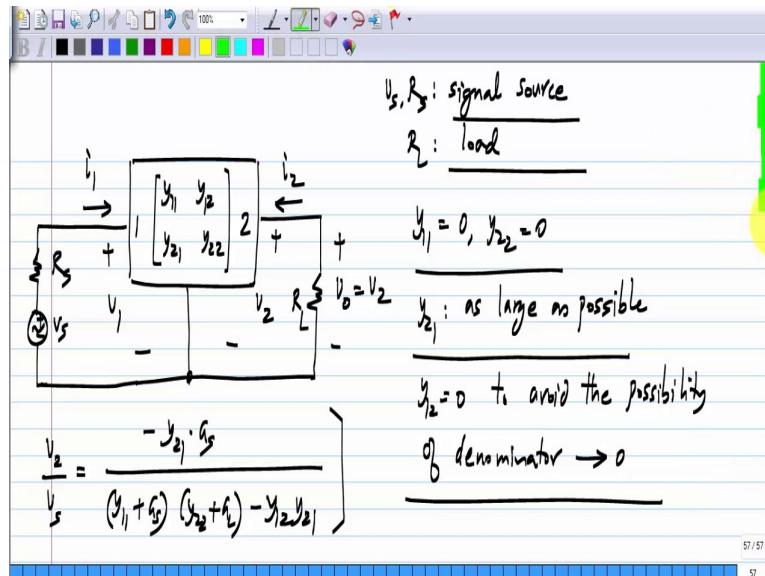 100%
v_s, R_s : signal source
R_L : load
i_1
i_2
1 [y_11 y_12
y_21 y_22] 2
R_s
v_s
+ v_1 −
+ v_2 −
R_L
+ v_0 = v_2 −
y_11 = 0, y_22 = 0
y_21 : as large as possible
y_12 = 0 to avoid the possibility
of denominator → 0
v_2 / v_s = − y_21 · G_s / (y_11 + G_s) (y_22 + G_L) − y_12 y_21
57 / 57
57